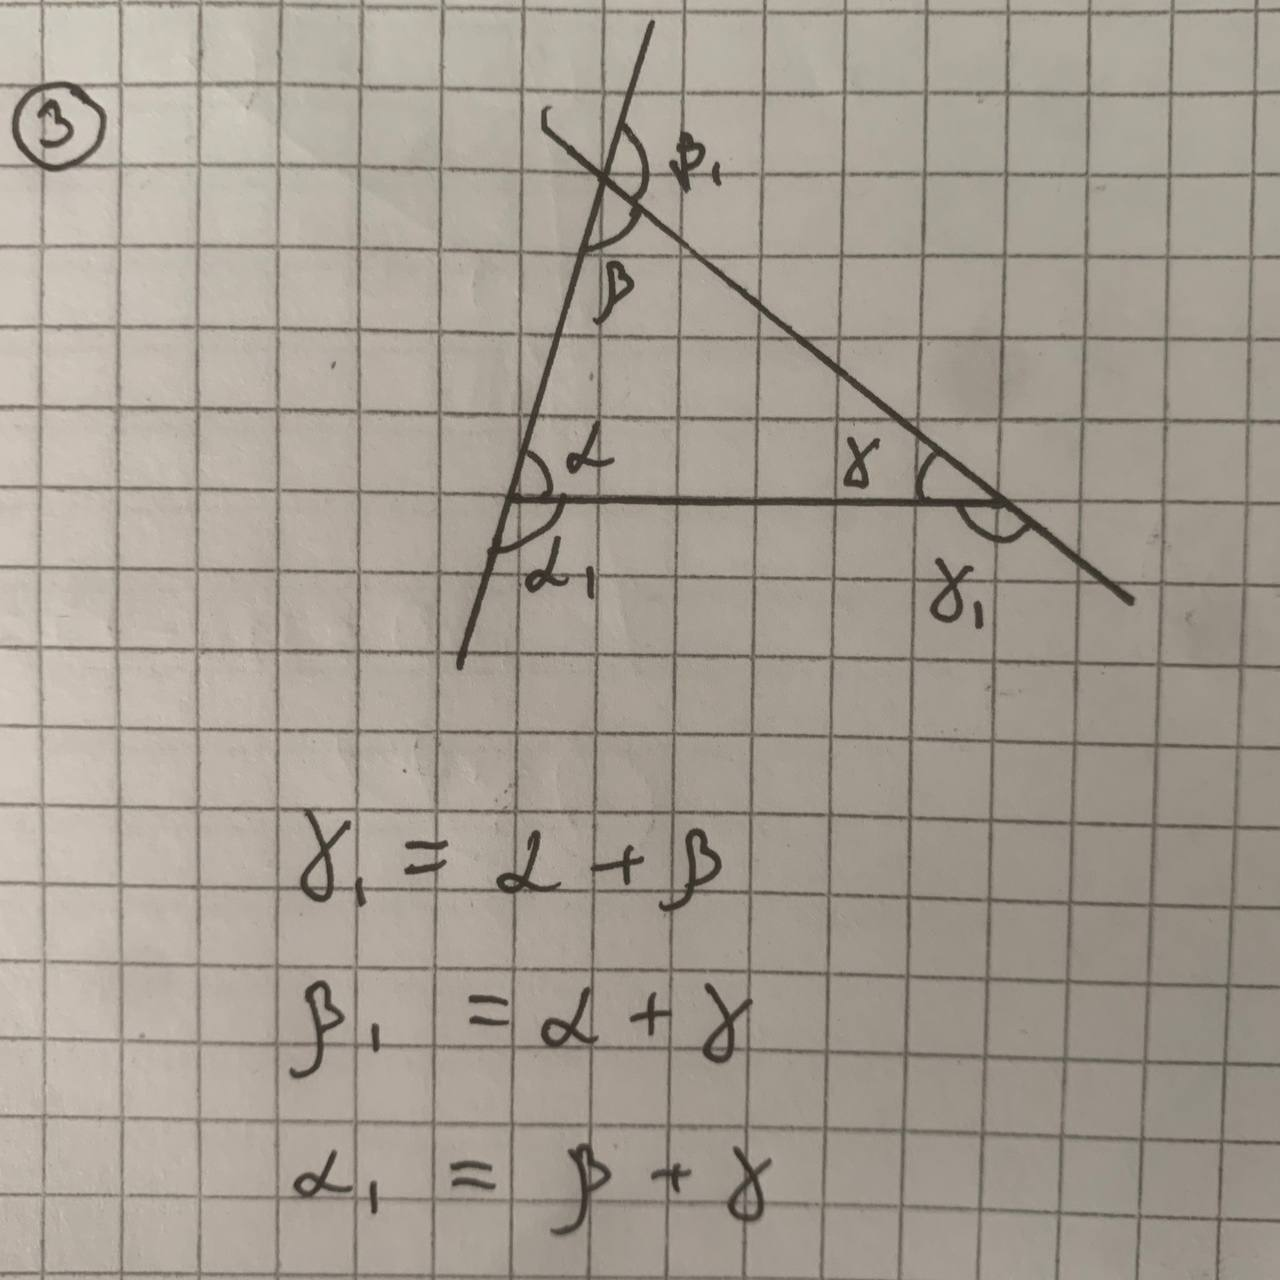 3
β₁
β
α
γ
α₁
γ₁
γ₁ = α + β
β₁ = α + γ
α₁ = β + γ